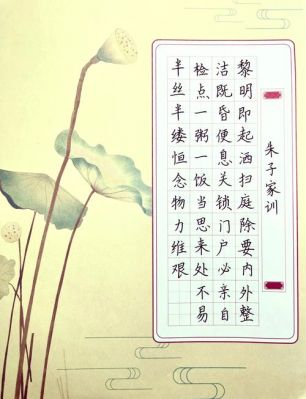 朱子家训
黎明即起洒扫庭除要内外整
洁既昏便息关锁门户必亲自
检点一粥一饭当思来处不易
半丝半缕恒念物力维艰